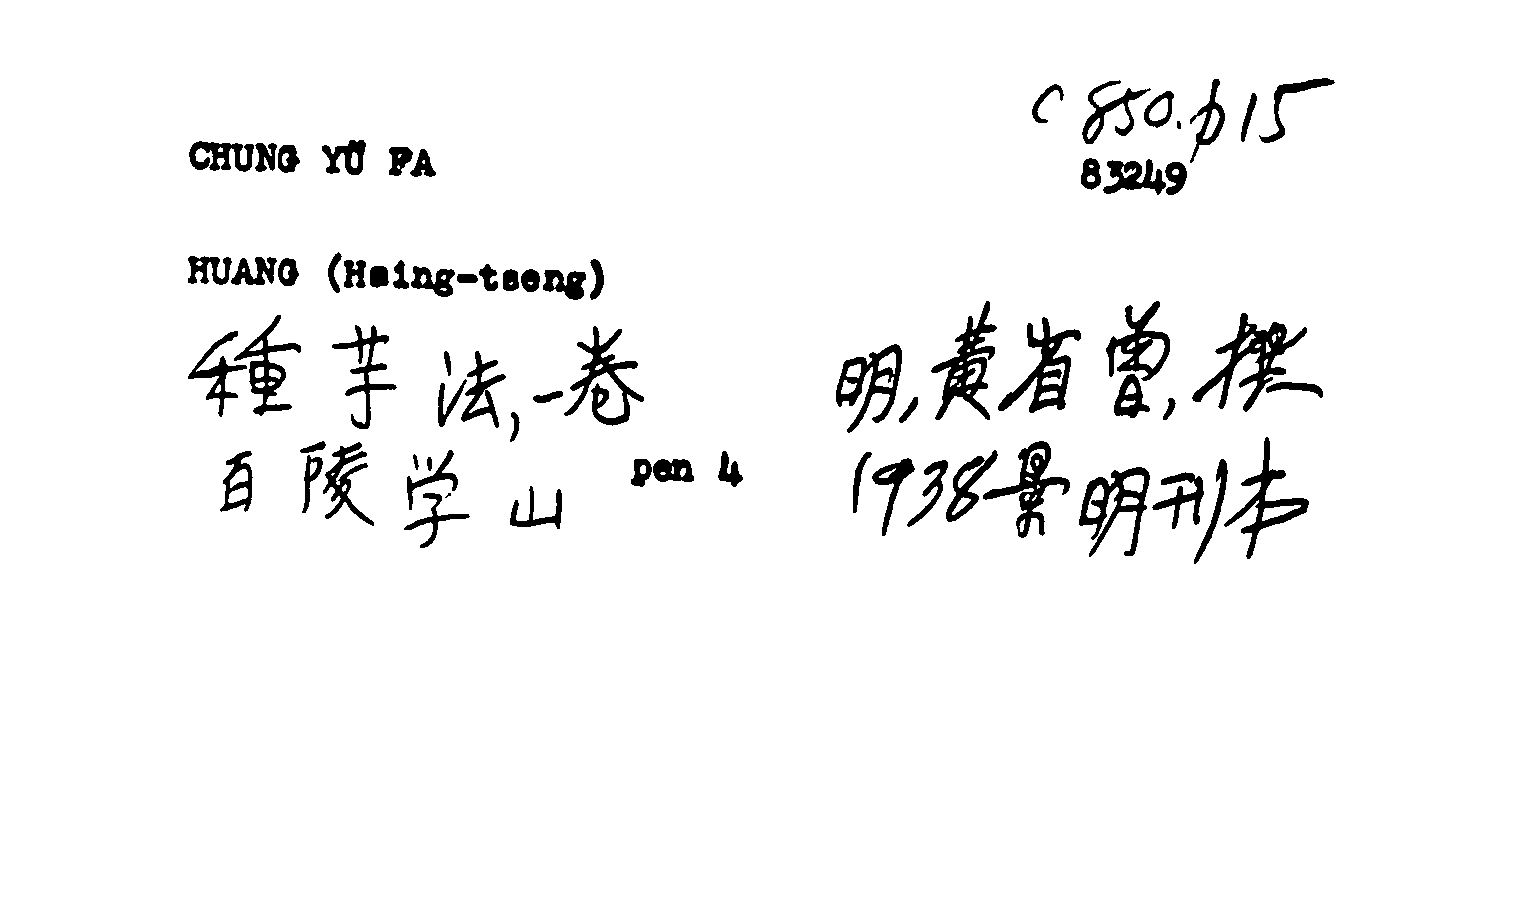 C 850.b15
CHUNG YÜ FA
83249
HUANG (Hsing-tseng)
種芋法,一卷 明,黄省曾,撰
百陵学山 pen 4 1938景明刊本